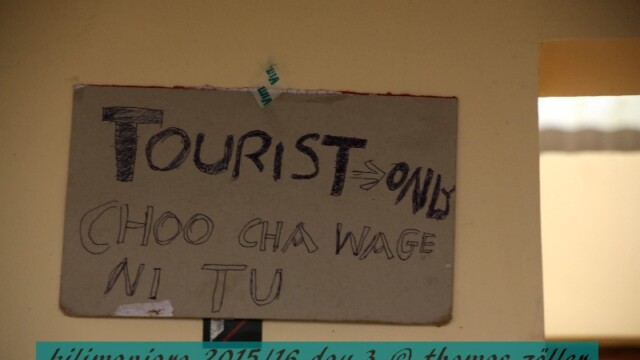 TOURIST ⇒ ONLY
CHOO CHA WAGE
NI TU
kilimanjaro 2015/16 day 3 @ thomas zöller